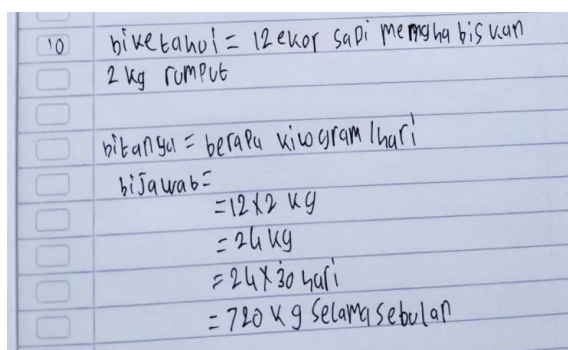 10 diketahui = 12 ekor sapi menghabiskan
2 kg rumput
ditanya = berapa kilogram/hari
dijawab =
= 12 x 2 kg
= 24 kg
= 24 x 30 hari
= 720 kg selama sebulan